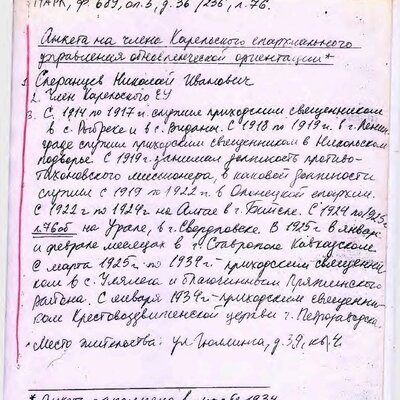 ПАРК, ф. 689, оп. 5, д. 36/236, л. 76.
Анкета на члена Карельского епархиального
управления обновленческой ориентации*
1. Сперанцев Николай Иванович
2. Член Карельского ЕУ
3. С 1914 по 1917 г. служил приходским священником
в с. Рыбреке и в с. Виданы. С 1918 по 1919 г. в г. Ленин
граде служил приходским священником в Никольском
подворье. С 1919 г. занимал должность противо-
тихоновского миссионера, в каковой должности
служил с 1919 по 1922 г. в Олонецкой епархии.
С 1922 г. по 1924 г. на Алтае в г. Бийске. С 1924 по 1925 г.
л. 76об на Урале, в г. Свердловске. В 1925 г. в январе
и феврале месяцах в г. Ставрополе Кавказском
С марта 1925 г. по 1934 г. - приходским священни
ком в с. Улялега и благочинным Пряжинского
района. С января 1934 г. - приходским священни-
ком Крестовоздвиженской церкви г. Петрозаводска.
Место жительства: ул. Гюллинга, д. 39, кв. 4